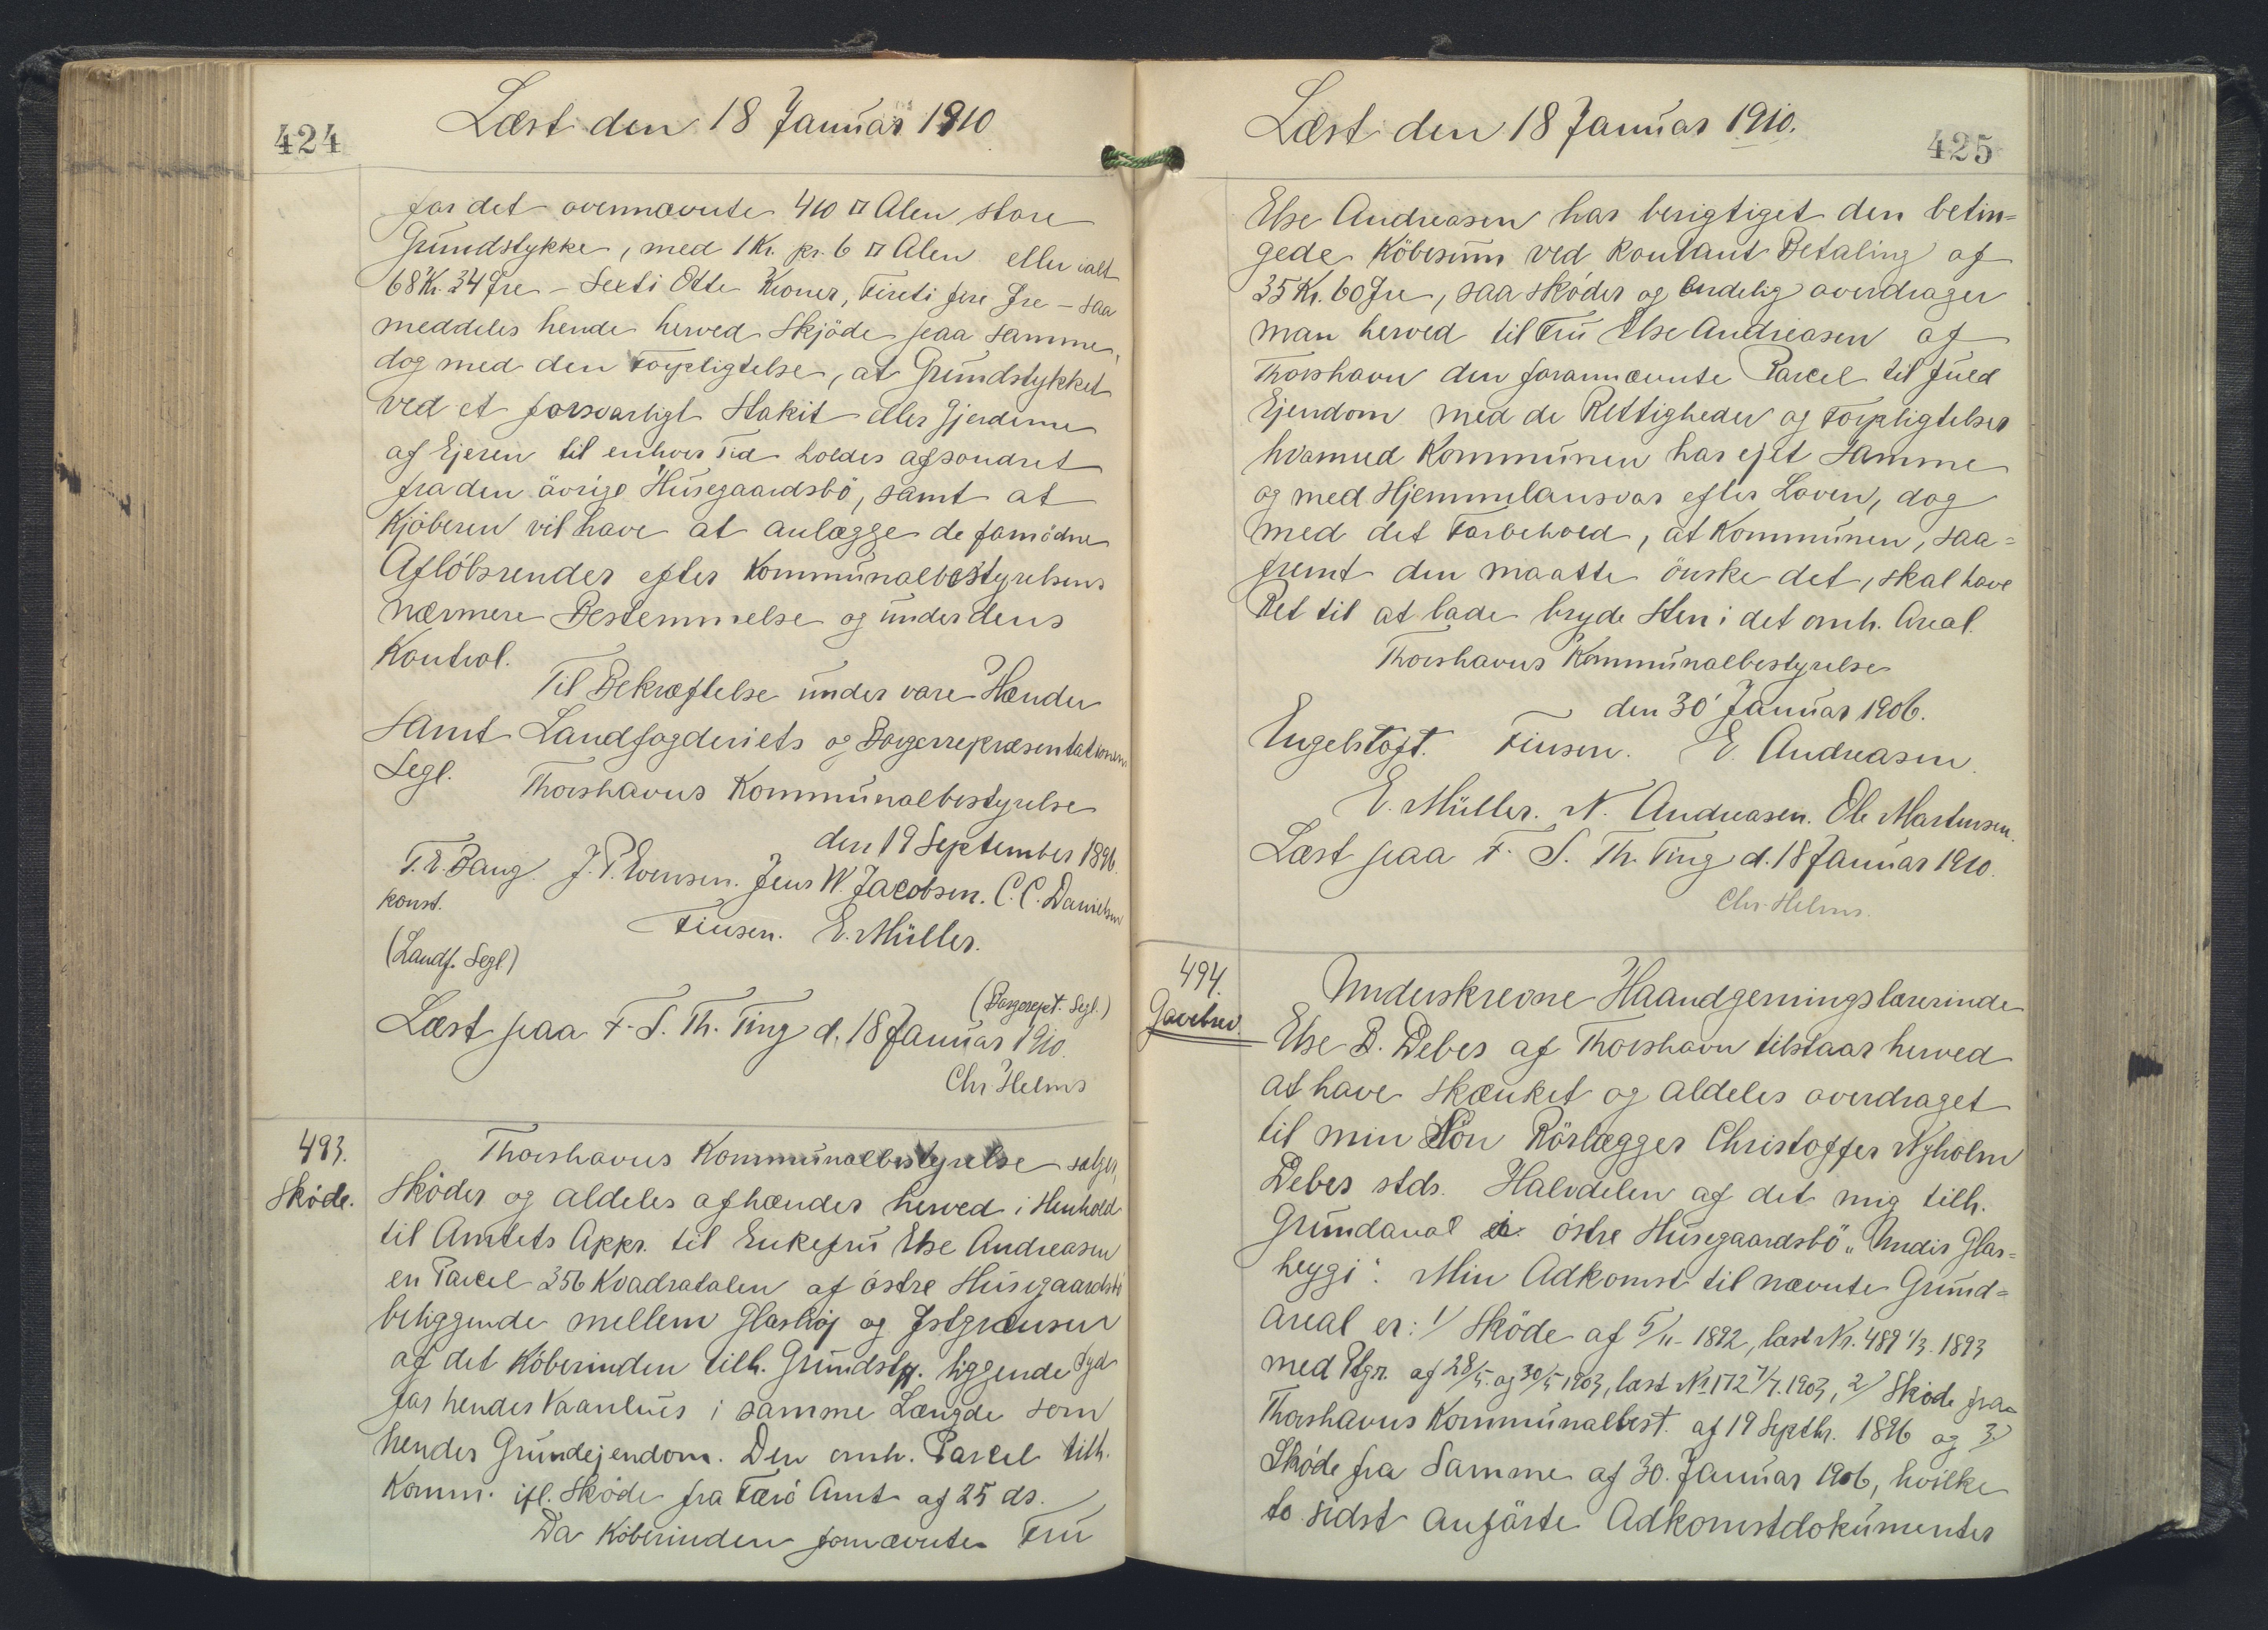 424
Læst den 18 Januar 1910
for det ovennævnte 410 □ Alen store
Grundstykke, med 1 Kr. pr. 6 □ Alen eller ialt
68 Kr. 34 Øre – Sexti Otte Kroner, Fireti fire Øre – saa
meddeles hende herved Skjöde paa samme,
dog med den Forpligtelse, at Grundstykket
ved et forsvarligt Stakit eller Gjerderne
af Ejeren til enhver Tid holdes afsondret
fra den övrige Husegaardsbö, samt at
Kjöberen vil have at anlægge de fornödne
Aflöbsrender efter Kommunalbestyrelsens
nærmere Bestemmelse og under dens
Kontrol.
Til Bekræftelse under vore Hænder
samt Landfogderiets og Borgerrepræsentationens
Segl.
Thorshavns Kommunalbestyrelse
den 19 September 1896.
T. E. Bang. J. P. Evensen. Jens W. Jacobsen. C. C. Danielsen
konst.
Finsen. E. Müller.
(Landf. Segl)
(Borgerrept. Segl.)
Læst paa F. S. Th. Ting d. 18 Januar 1910.
Chr. Helms
493.
Sköde.
Thorshavns Kommunalbestyrelse sælger,
sköder og aldeles afhænder herved i Henhold
til Amtets Appr. til Enkefru Else Andreasen
en Parcel 356 Kvadratalen af östre Husegaardsbö
beliggende mellem Glashöj og Östgrænsen
af det Köberinden tilh. Grundstk. liggende Syd
for hendes Vaanhus i samme Længde som
hendes Grundejendom. Den omh. Parcel tilh.
Komm. ifl. Sköde fra Færö Amt af 25 ds.
Da Köberinden fornævnte Fru
Læst den 18 Januar 1910.
425
Else Andreasen har berigtiget den betin=
gede Köbesum ved kontant Betaling af
35 Kr. 60 Øre, saa sköder og endelig overdrager
man herved til Fru Else Andreasen af
Thorshavn den forannævnte Parcel til fuld
Ejendom med de Rettigheder og Forpligtelser
hvormed Kommunen har ejet samme
og med Hjemmelansvar efter Loven, dog
med det Forbehold, at Kommunen, saa=
fremt den maatte önske det, skal have
Ret til at lade bryde Sten i det omh. Areal.
Thorshavns Kommunalbestyrelse
den 30' Januar 1906.
Engelstoft. Finsen. E. Andreasen.
E. Müller. N. Andreasen. Ole Mortensen.
Læst paa F. S. Th. Ting d. 18 Januar 1910.
Chr. Helms.
494.
Gavebrev.
Underskrevne Haandgerningslærerinde
Else B. Debes af Thorshavn tilstaar herved
at have skænket og aldeles overdraget
til min Sön Rörlægger Christoffer Nyholm
Debes stds. Halvdelen af det mig tilh.
Grundareal i östre Husegaardsbö „Undir Glas=
heygi“. Min Adkomst til nævnte Grund=
areal er: 1/ Sköde af 5/11 1892, læst Nr. 489 1/3 1893
med Ptgn. af 28/5 og 30/5 1903, læst Nr 172 7/7. 1903, 2/ Sköde fra
Thorshavns Kommunalbest. af 19 Septbr. 1896 og 3/
Sköde fra Samme af 30. Januar 1906, hvilke
to sidst anförte Adkomstdokumenter